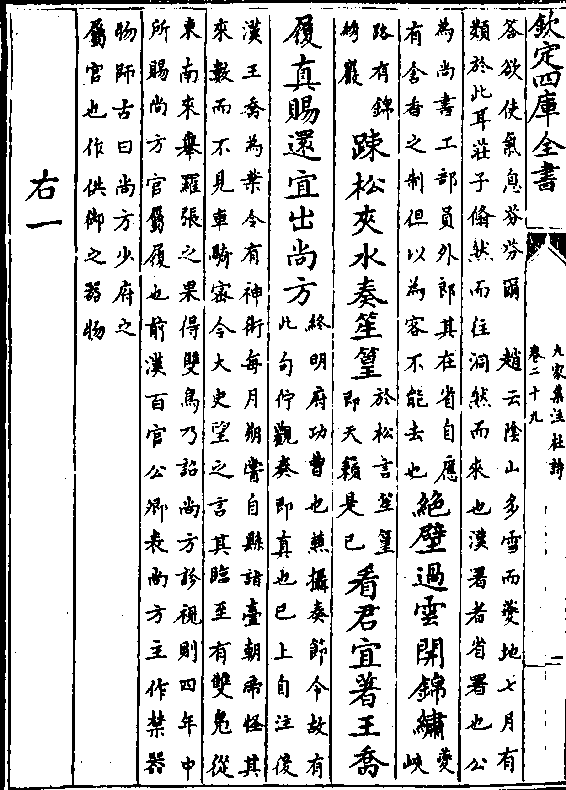 欽定四庫全書
九家集注杜詩
卷二十九
二
荅欲使氣息芬芬爾　趙云陰山多雪而夔地七月有
類於此耳莊子翛然而往洞然而來也漢署者省署也公
為尚書工部員外郎其在省自應
有含香之制但以為客不能去也
絶壁過雲開錦繡
夔
峽
路有錦
繡巖
疎松夾水奏笙篁
於松言笙篁
即天籟是已
看君宜著王喬
履真賜還宜出尚方
終明府功曹也兼攝奏節令故有
此句佇觀奏即真也已上自注後
漢王喬為葉令有神術每月朔嘗自縣詣臺朝帝怪其
來數而不見車騎密令大史望之言其臨至有雙鳧從
東南來舉羅張之果得雙舄乃詔尚方診視則四年中
所賜尚方官屬履也前漢百官公卿表尚方主作禁器
物師古曰尚方少府之
屬官也作供御之器物
右一